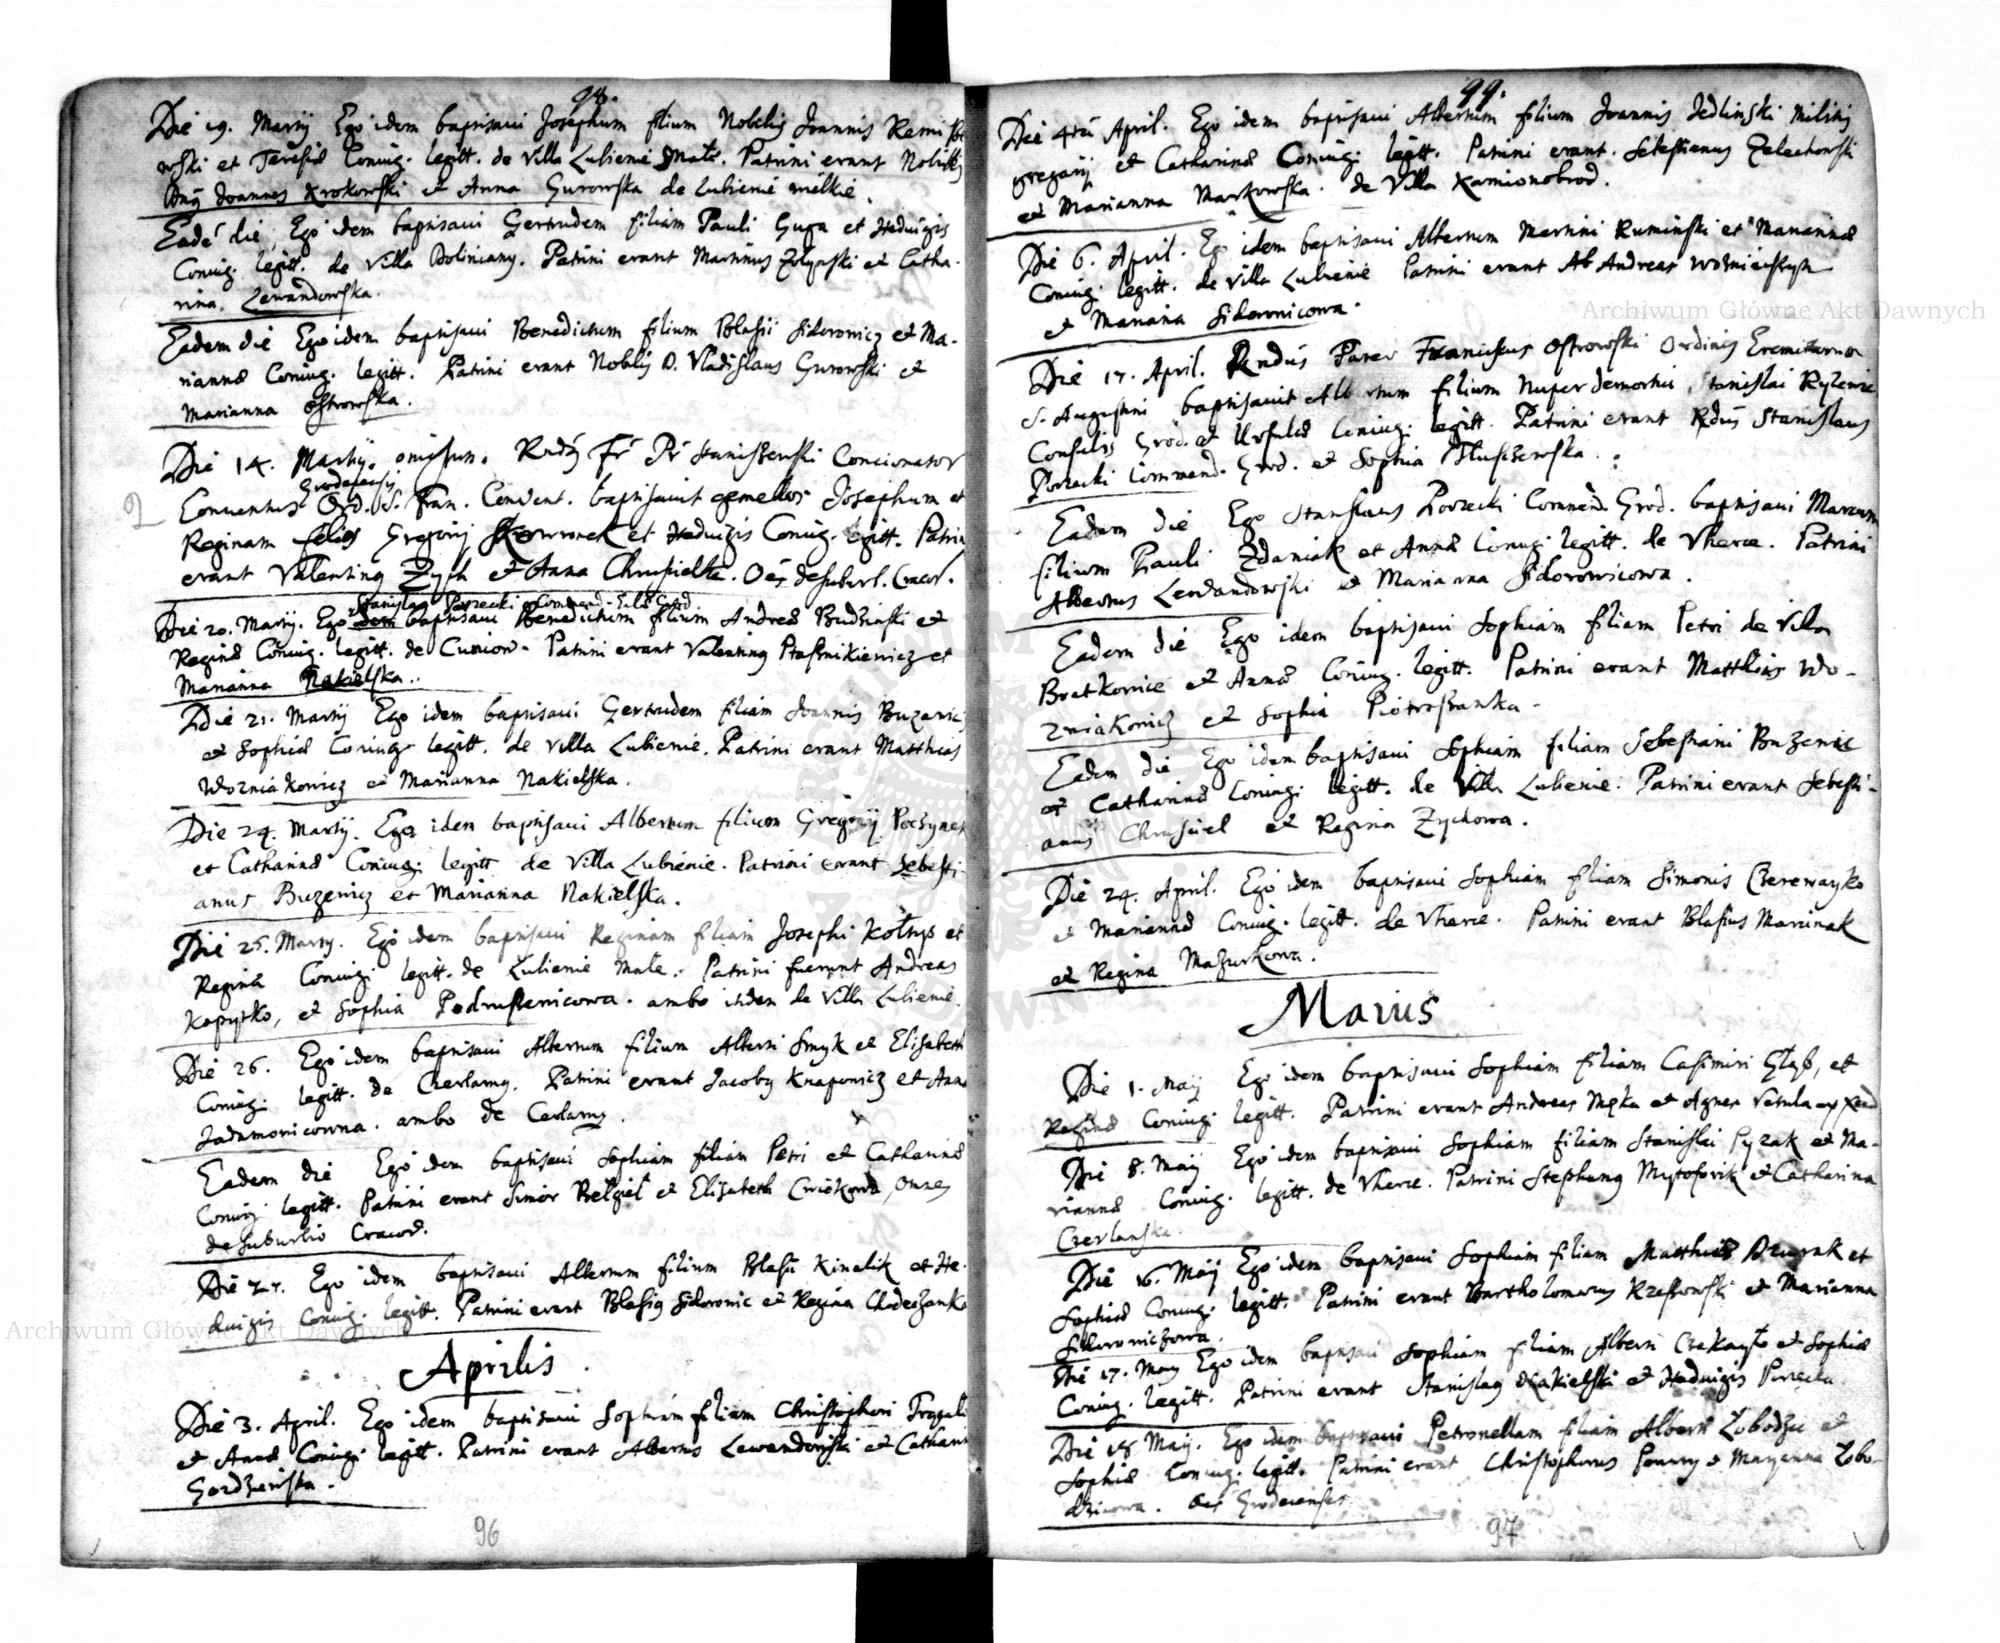 98.
Die 19. Martij Ego idem baptisavi Josephum filium Nobilis Joannis Remi
wski et Teresiæ Coniug. legitt. de Villa Lubienie Małe. Patrini erant Nobilis
Joannes Krokowski et Anna Gurowska de Lubienie wielkie.
Eadē die Ego idem baptisavi Gertrudem filiam Pauli Guga et Hedvigis
Coniug. legitt. de Villa Doliniany. Patrini erant Martinus et Catha-
rina Lewandowska.
Eadem die Ego idem baptisavi Benedictum filium Blasii Sidorowicz et Ma-
riannæ Coniug. legitt. Patrini erant Nobilis D. Vladislaus Gurowski et
Marianna Ostrowska.
Die 14. Martij. omissum. Staniszewski Concionator
Grodecensis
Conventus Ord. S. Fran. Convent. baptisavit gemellos Josephum et
Reginam Gregorij Skowronek et Hedvigis Coniug. legitt. Patrini
erant Valentinus Zych et Anna Chrusielka. de suburb. Cracov.
Stanislaus Porzecki Commend.
Die 20. Martij. Ego idem baptisavi Benedictum filium Andreæ Budzinski et
Reginæ Coniug. legitt. de Patrini erant Valentinus Ptasznikiewicz et
Marianna Nakielska.
Die 21. Martij Ego idem baptisavi Gertrudem filiam Joannis Buzenic
et Sophiæ Coniug. legitt. de Villa Lubienie. Patrini erant Matthias
Wozniakowicz et Marianna Nakielska.
Die 24. Martij. Ego idem baptisavi Albertum filium Gregorij Poczynek
et Catharinæ Coniug. legitt de Villa Lubienie. Patrini erant Sebesti-
anus Buzenicz et Marianna Nakielska.
Die 25. Martij. Ego idem baptisavi Reginam filiam Josephi et
Reginæ Coniug. legitt. de Lubienie Małe. Patrini fuerunt Andreas
Kopytko, et Sophia ambo itidem de Villa Lubienie.
Die 26. Ego idem baptisavi Albertum filium Alberti Smyk et Elisabeth
Coniug. legitt. de Czerlany. Patrini erant Jacobus Knapowicz et Anna
Jadamowicowna. ambo de Cerlany.
Eadem die Ego idem baptisavi Sophiam filiam Petri et Catharinæ
Coniug. legitt. Patrini erant Simon et Elisabeth Cwiekowa, omnes
de suburbio Cracov.
Die 27. Ego idem baptisavi Albertum filium Blasii Kinalik et He-
dvigis Coniug. legitt. Patrini erant Blasius Sidorowic et Regina
Aprilis.
Die 3. April. Ego idem baptisavi Sophiam filiam Christophori
et Annæ Coniug. legitt. Patrini erant Albertus Lewandowski et Cathari
Gordzienska.
96
99.
Die 4ta April. Ego idem baptisavi Albertum filium Joannis Jedlinski Militis
gregarij et Catharinæ Coniug. legitt. Patrini erant. Sebestianus Zelechowski
et Marianna Markowska. de Villa Kamionobrod.
Die 6. April. Ego idem baptisavi Albertum Martini Ruminski et Mariannæ
Coniug. legitt. de Villa Lubienie Patrini erant Andreas
et Mariana Sidorowicowa.
Die 17. April. Rndus Pater Franciscus Ostrowski Ordinis Eremitarum
S. Augustini baptisavit Albertum filium nuper demortui Stanislai
Consulis Grod. et Ursulæ Coniug. legitt. Patrini erant Rdus Stanislaus
Porzecki Commend. Grod. et Sophia Tłusczewska.
Eadem die Ego Stanislaus Porzecki Commend. Grod. baptisavi Marcum
filium Pauli Zdaniak et Annæ Coniug. legitt. de Vherce. Patrini
Albertus Lewandowski et Marianna Sidorowicowa.
Eadem die Ego idem baptisavi Sophiam filiam Petri de Villa
Bratkowice et Annæ Coniug. legitt. Patrini erant Matthias Wo-
zniakowicz et Sophia
Eadem die Ego idem baptisavi Sophiam filiam Sebestiani Buzenic
et Catharinæ Coniug. legitt. de Villa Lubienie. Patrini erant Sebesti-
anus Chrusciel et Regina Zychowa.
Die 24. April. Ego idem baptisavi Sophiam filiam Simonis
et Mariannæ Coniug. legitt. de Vherce. Patrini erant Blasius Marcinak
et Regina Mazurkowa.
Maius
Die 1. Maij Ego idem baptisavi Sophiam filiam Casimiri et
Reginæ Coniug. legitt. Patrini erant Andreas Męka et Agnes
Die 8. Maij Ego idem baptisavi Sophiam filiam Stanislai Pyzak et Ma-
riannæ Coniug. legitt. de Vherce. Patrini Stephanus et Catharina
Czerlanska.
Die 16. Maij Ego idem baptisavi Sophiam filiam Matthiæ et
Sophiæ Coniug. legitt. Patrini erant Bartholomæus et Marianna
Sidorowiczowa.
Die 17. Maij Ego idem baptisavi Sophiam filiam Alberti et Sophiæ
Coniug. legitt. Patrini erant Stanislaus Nakielski et Hedvigis
Die 18. Maij. Ego idem baptisavi Petronellam filiam Alberti et
Sophiæ Coniug. legitt. Patrini erant Christophorus et Maryanna
Grodecenses
97
Archiwum Główne Akt Dawnych
Archiwum Główne Akt Dawnych